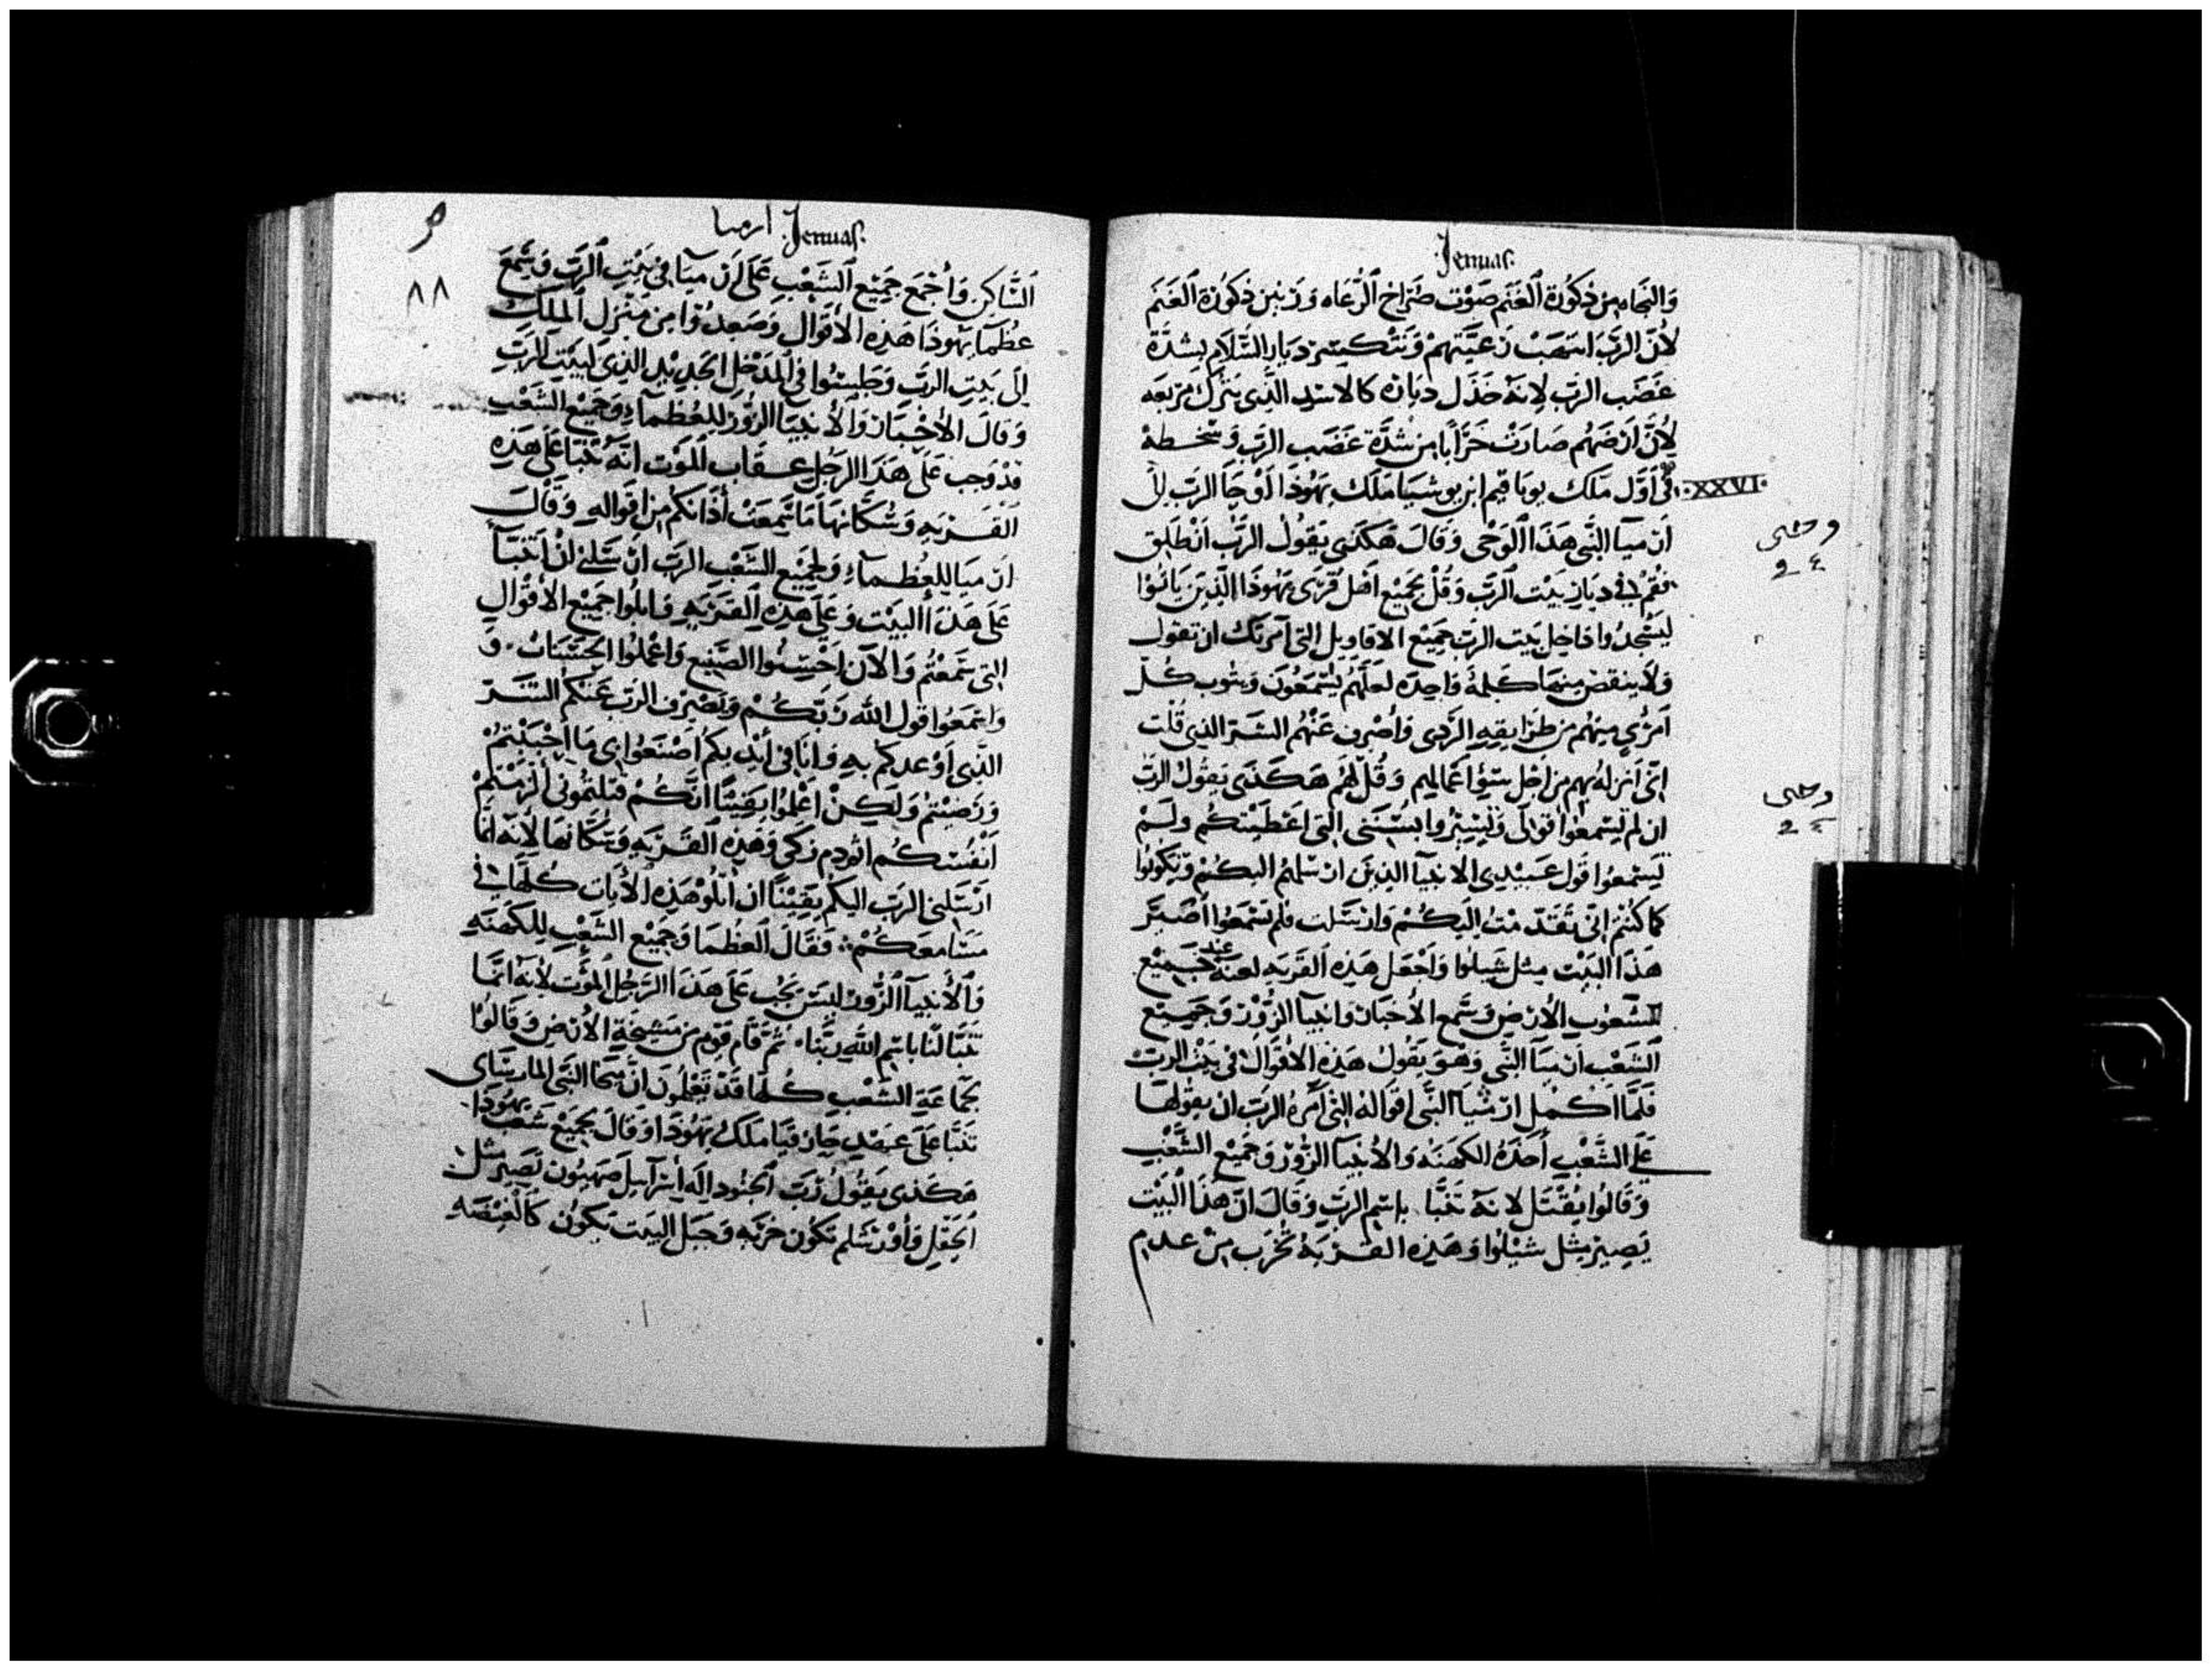 Jeremias.
والنجاه من ذكورة الغنم صوت صراخ الرعاه وزنين ذكورة الغنم
لأن الرب انتهب رعيتهم وتنكسر ديار السلام بشدة
غضب الرب لانه خذل دياره كالاسد الذي يترك مربعه
لأن ارضهم صارت خرابا من شدة غضب الرب وسخطه
XXVI
في اول ملك يوياقيم ابن يوشيا ملك يهوذا اوحا الرب الى
ارميا النبي هذا الوحي وقال هكذى يقول الرب انطلق
فقم في ديار بيت الرب وقل لجميع اهل قرى يهوذا الذين ياتوا
ليسجدوا داخل بيت الرب جميع الاقاويل التي آمرتك ان تقول
ولا ينقص منها كلمة واحده لعلهم يسمعون ويتوب كل
امرئ منهم من طرايقه الردى واصرف عنهم الشر الذي قلت
اني انزله بهم من اجل سؤ اعمالهم وقل لهم هكذى يقول الرب
ان لم تسمعوا قولي وتسيروا بسنني التي اعطيتكم ولم
تسمعوا قول عبيدي الانبيا الذين ارسلهم اليكم وتكونوا
كما كنتم اني تقدمت اليكم وارسلت فلم تسمعوا اصير
هذا البيت مثل شيلوا واجعل هذه القريه لعنة عند جميع
شعوب الارض وسمع الأحبار وانبيا الزور وجميع
الشعب ارميا النبي وهو يقول هذه الاقوال في بيت الرب
فلما اكمل ارميا النبي اقواله التي امره الرب ان يقولها
على الشعب أخذه الكهنه والأنبيا الزور وجميع الشعب
وقالوا يقتل لانه تنبا باسم الرب وقال ان هذا البيت
يصير مثل شيلوا وهذه القرية تخرب من عدم
وحى
وحى
ارميا Jeremias.
٨٨
الساكن وأجمع جميع الشعب على ارميا في بيت الرب وسمع
عظما يهوذا هذه الأقوال وصعدوا من منزل الملك
الى بيت الرب وجلسوا في المدخل الجديد الذي لبيت الرب
وقال الأحبار والأنبيا الزور للعظماء وجميع الشعب
قد وجب على هذا الرجل عقاب الموت انه تنبا على هذه
القريه وسكانها ما سمعت أذانكم من اقواله وقال
ارميا للعظماء ولجميع الشعب الرب ارسلني ان اتنبأ
على هذا البيت وعلى هذه القريه فابلوا جميع الأقوال
التي سمعتم والآن احسنوا الصنيع واعملوا الحسنات و
واسمعوا قول الله ربكم ويصرف الرب عنكم الشر
الذي أوعدكم به وانا في أيديكم اصنعوا بي ما احببتم
ورضيتم ولكن اعلموا يقينا انكم قتلتموني ألزمتم
انفسكم اثم دم زكي وهذه القريه وسكانها لأنه انما
ارسلني الرب اليكم يقينا ان اتلو هذه الأيات كلها في
مسامعكم فقال العظما وجميع الشعب للكهنه
والأنبيا الزور ليس يجب على هذا الرجل الموت لأنه انما
تنبا لنا باسم الله ربنا ثم قام قوم من مشيخة الأرض وقالوا
لجماعة الشعب كلها قد تعلمون ان ميخا النبي المارساى
تنبا على عهد حازقيا ملك يهوذا وقال لجميع شعب يهوذا
هكذى يقول رب الجنود اله اسرآييل صهيون تصير مثل
الحقل وأورشلم تكون خربه وجبل البيت يكون كالغيضه